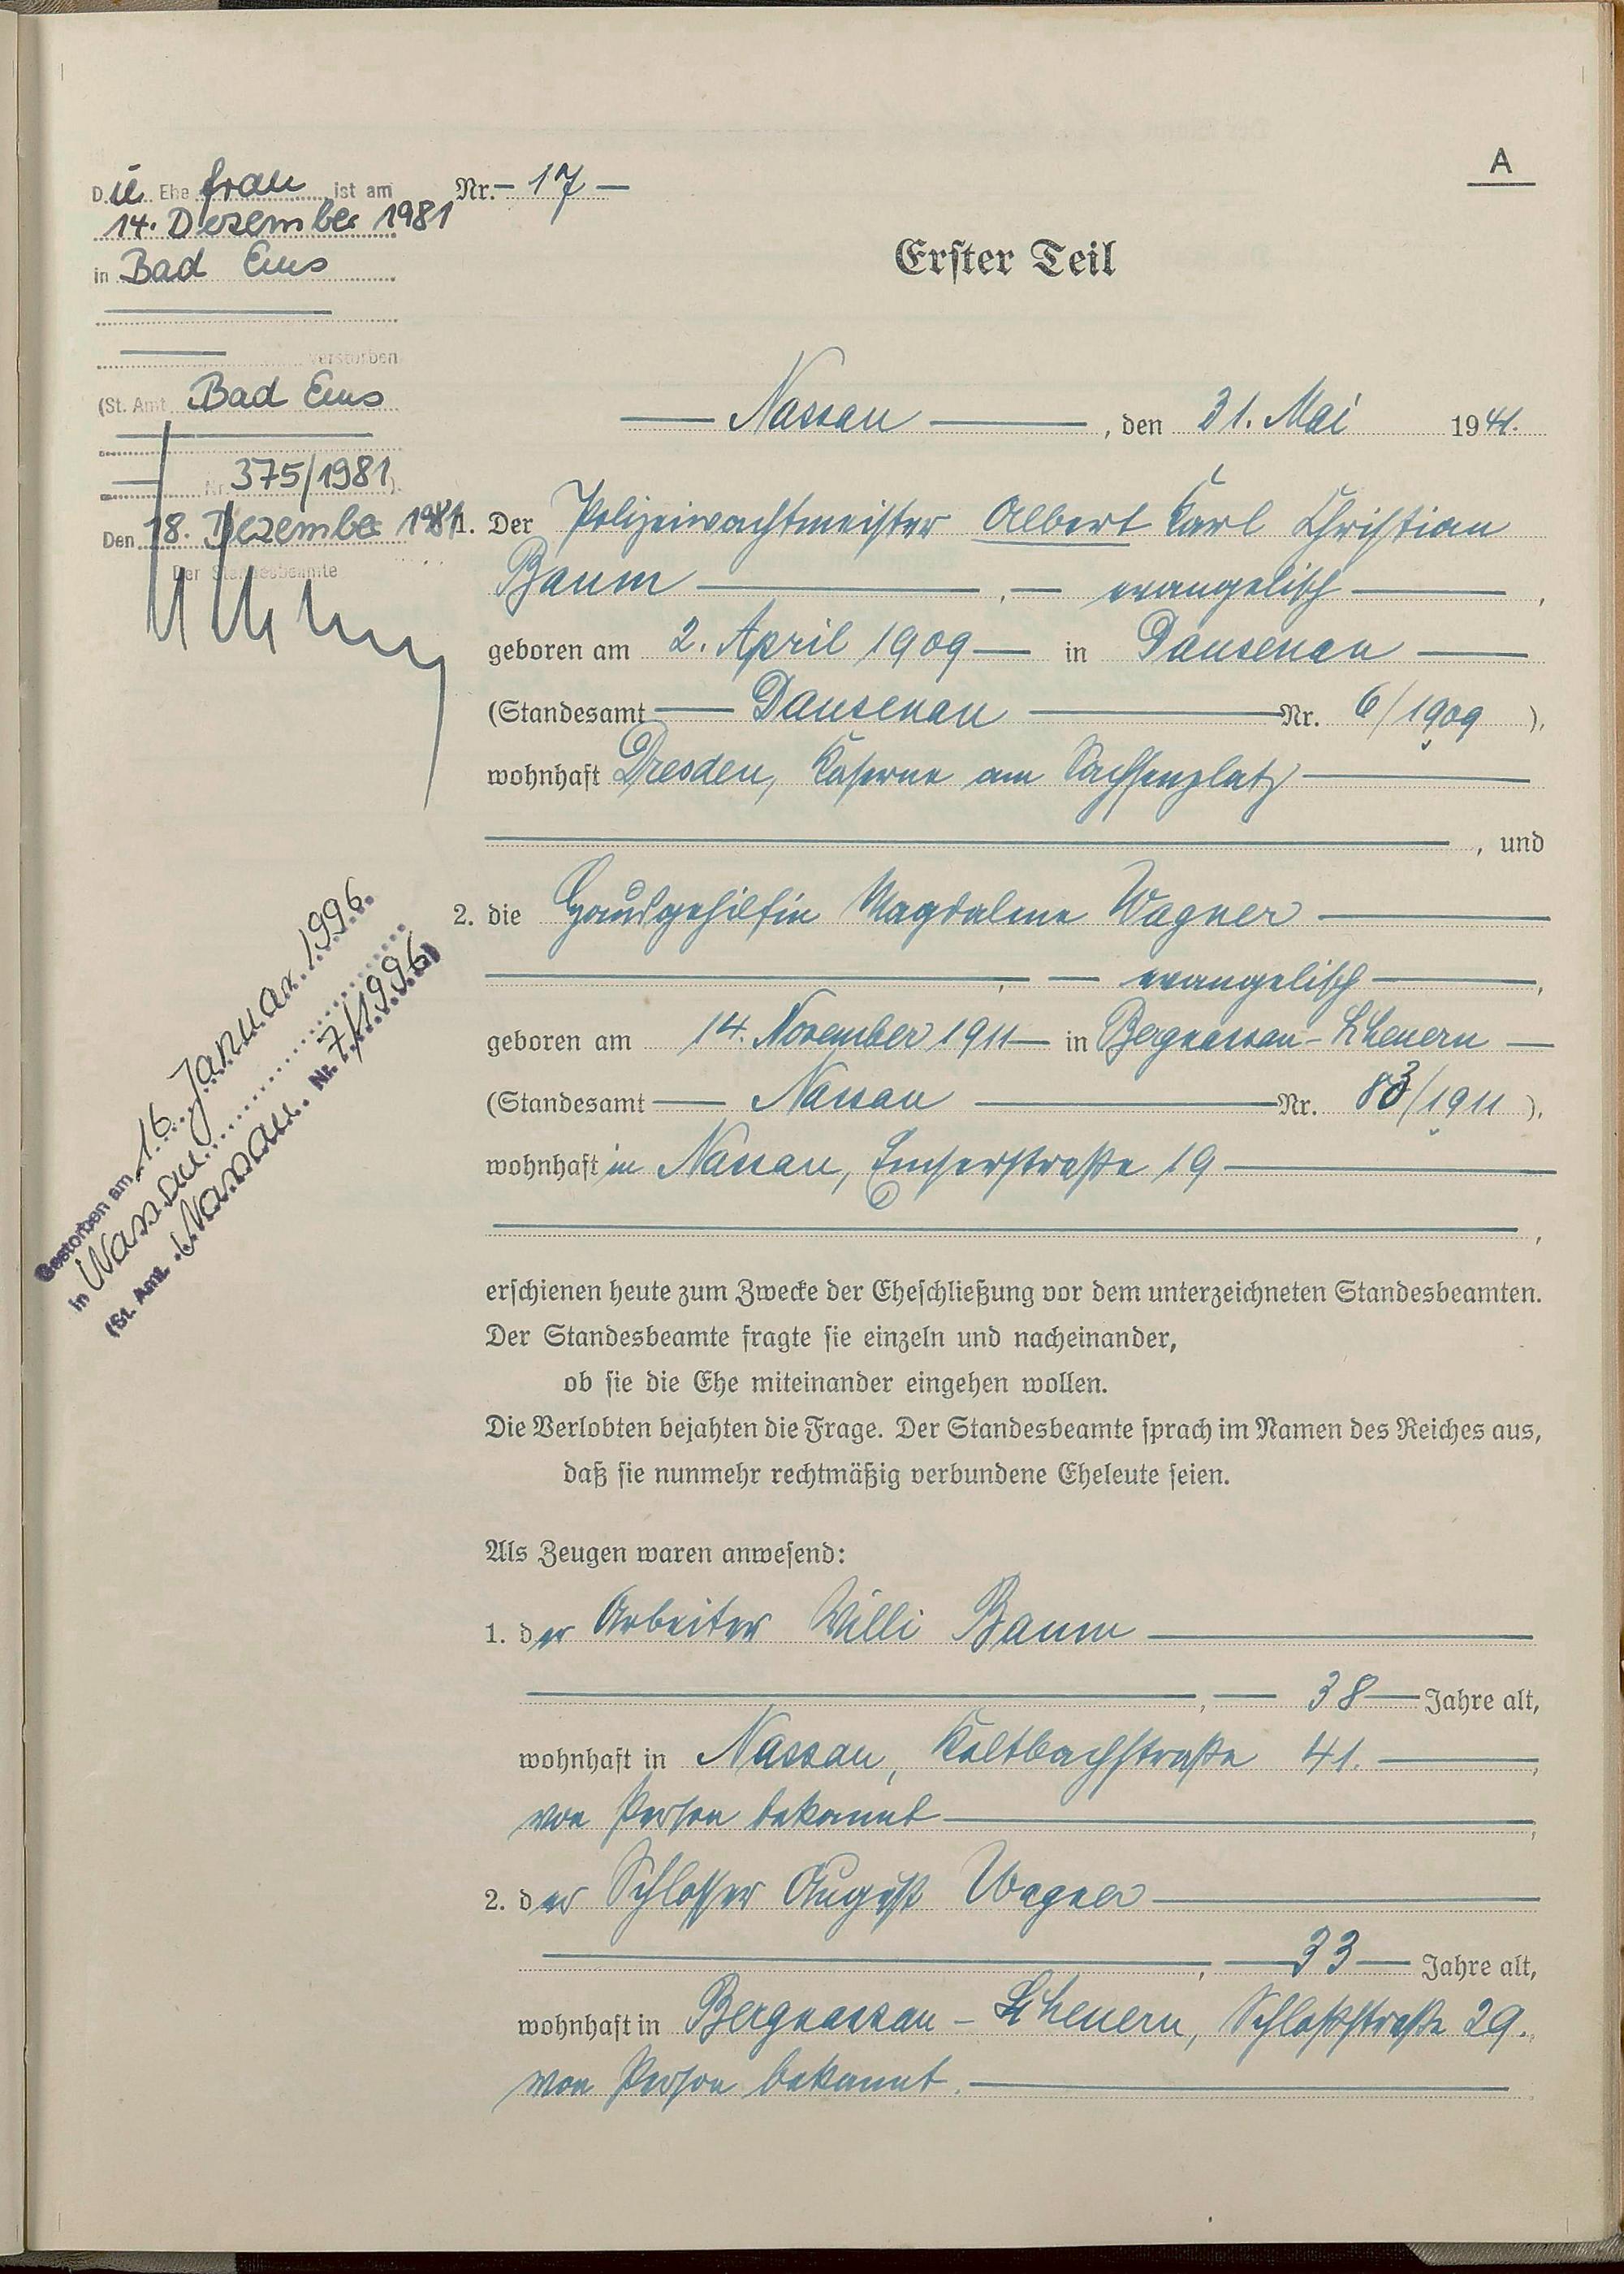 A
Die Ehefrau ist am
14. Dezember 1981
in Bad Ems
verstorben
(St. Amt Bad Ems
Nr. 375/1981).
Den 18. Dezember 1981
Der Standesbeamte
Gestorben am 16. Januar 1996
in Nassau
(St. Amt Nassau Nr. 7/1996)
Nr. 17
Erster Teil
Nassau, den 31. Mai 1941.
1. Der Polizeiwachtmeister Albert Karl Christian
Baum, evangelisch,
geboren am 2. April 1909 in Dausenau
(Standesamt Dausenau Nr. 6/1909),
wohnhaft Dresden, Kaserne am Sachsenplatz
, und
2. die Hausgehilfin Magdalene Wagner
, evangelisch,
geboren am 14. November 1911 in Bergnassau-Scheuern
(Standesamt Nassau Nr. 83/1911),
wohnhaft in Nassau, Emserstraße 19
,
erschienen heute zum Zwecke der Eheschließung vor dem unterzeichneten Standesbeamten.
Der Standesbeamte fragte sie einzeln und nacheinander,
ob sie die Ehe miteinander eingehen wollen.
Die Verlobten bejahten die Frage. Der Standesbeamte sprach im Namen des Reiches aus,
daß sie nunmehr rechtmäßig verbundene Eheleute seien.
Als Zeugen waren anwesend:
1. der Arbeiter Willi Baum
, 38 Jahre alt,
wohnhaft in Nassau, Kaltbachstraße 41.,
von Person bekannt,
2. der Schlosser August Wagner
, 33 Jahre alt,
wohnhaft in Bergnassau-Scheuern, Schloßstraße 29.,
von Person bekannt.